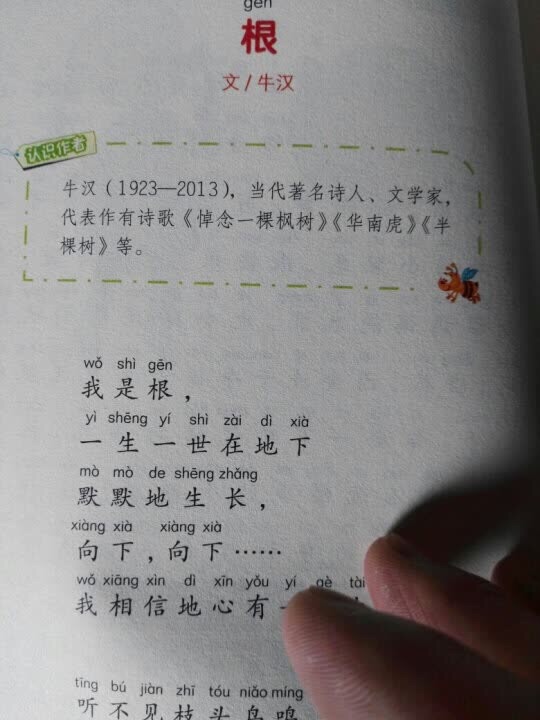 gēn
根
文/牛汉
认识作者
牛汉（1923—2013），当代著名诗人、文学家，
代表作有诗歌《悼念一棵枫树》《华南虎》《半
棵树》等。
wǒ shì gēn
我是根，
yì shēng yí shì zài dì xià
一生一世在地下
mò mò de shēng zhǎng
默默地生长，
xiàng xià xiàng xià
向下，向下……
wǒ xiāng xìn dì xīn yǒu yí gè tài
我相信地心有一
tīng bú jiàn zhī tóu niǎo míng
听不见枝头鸟鸣